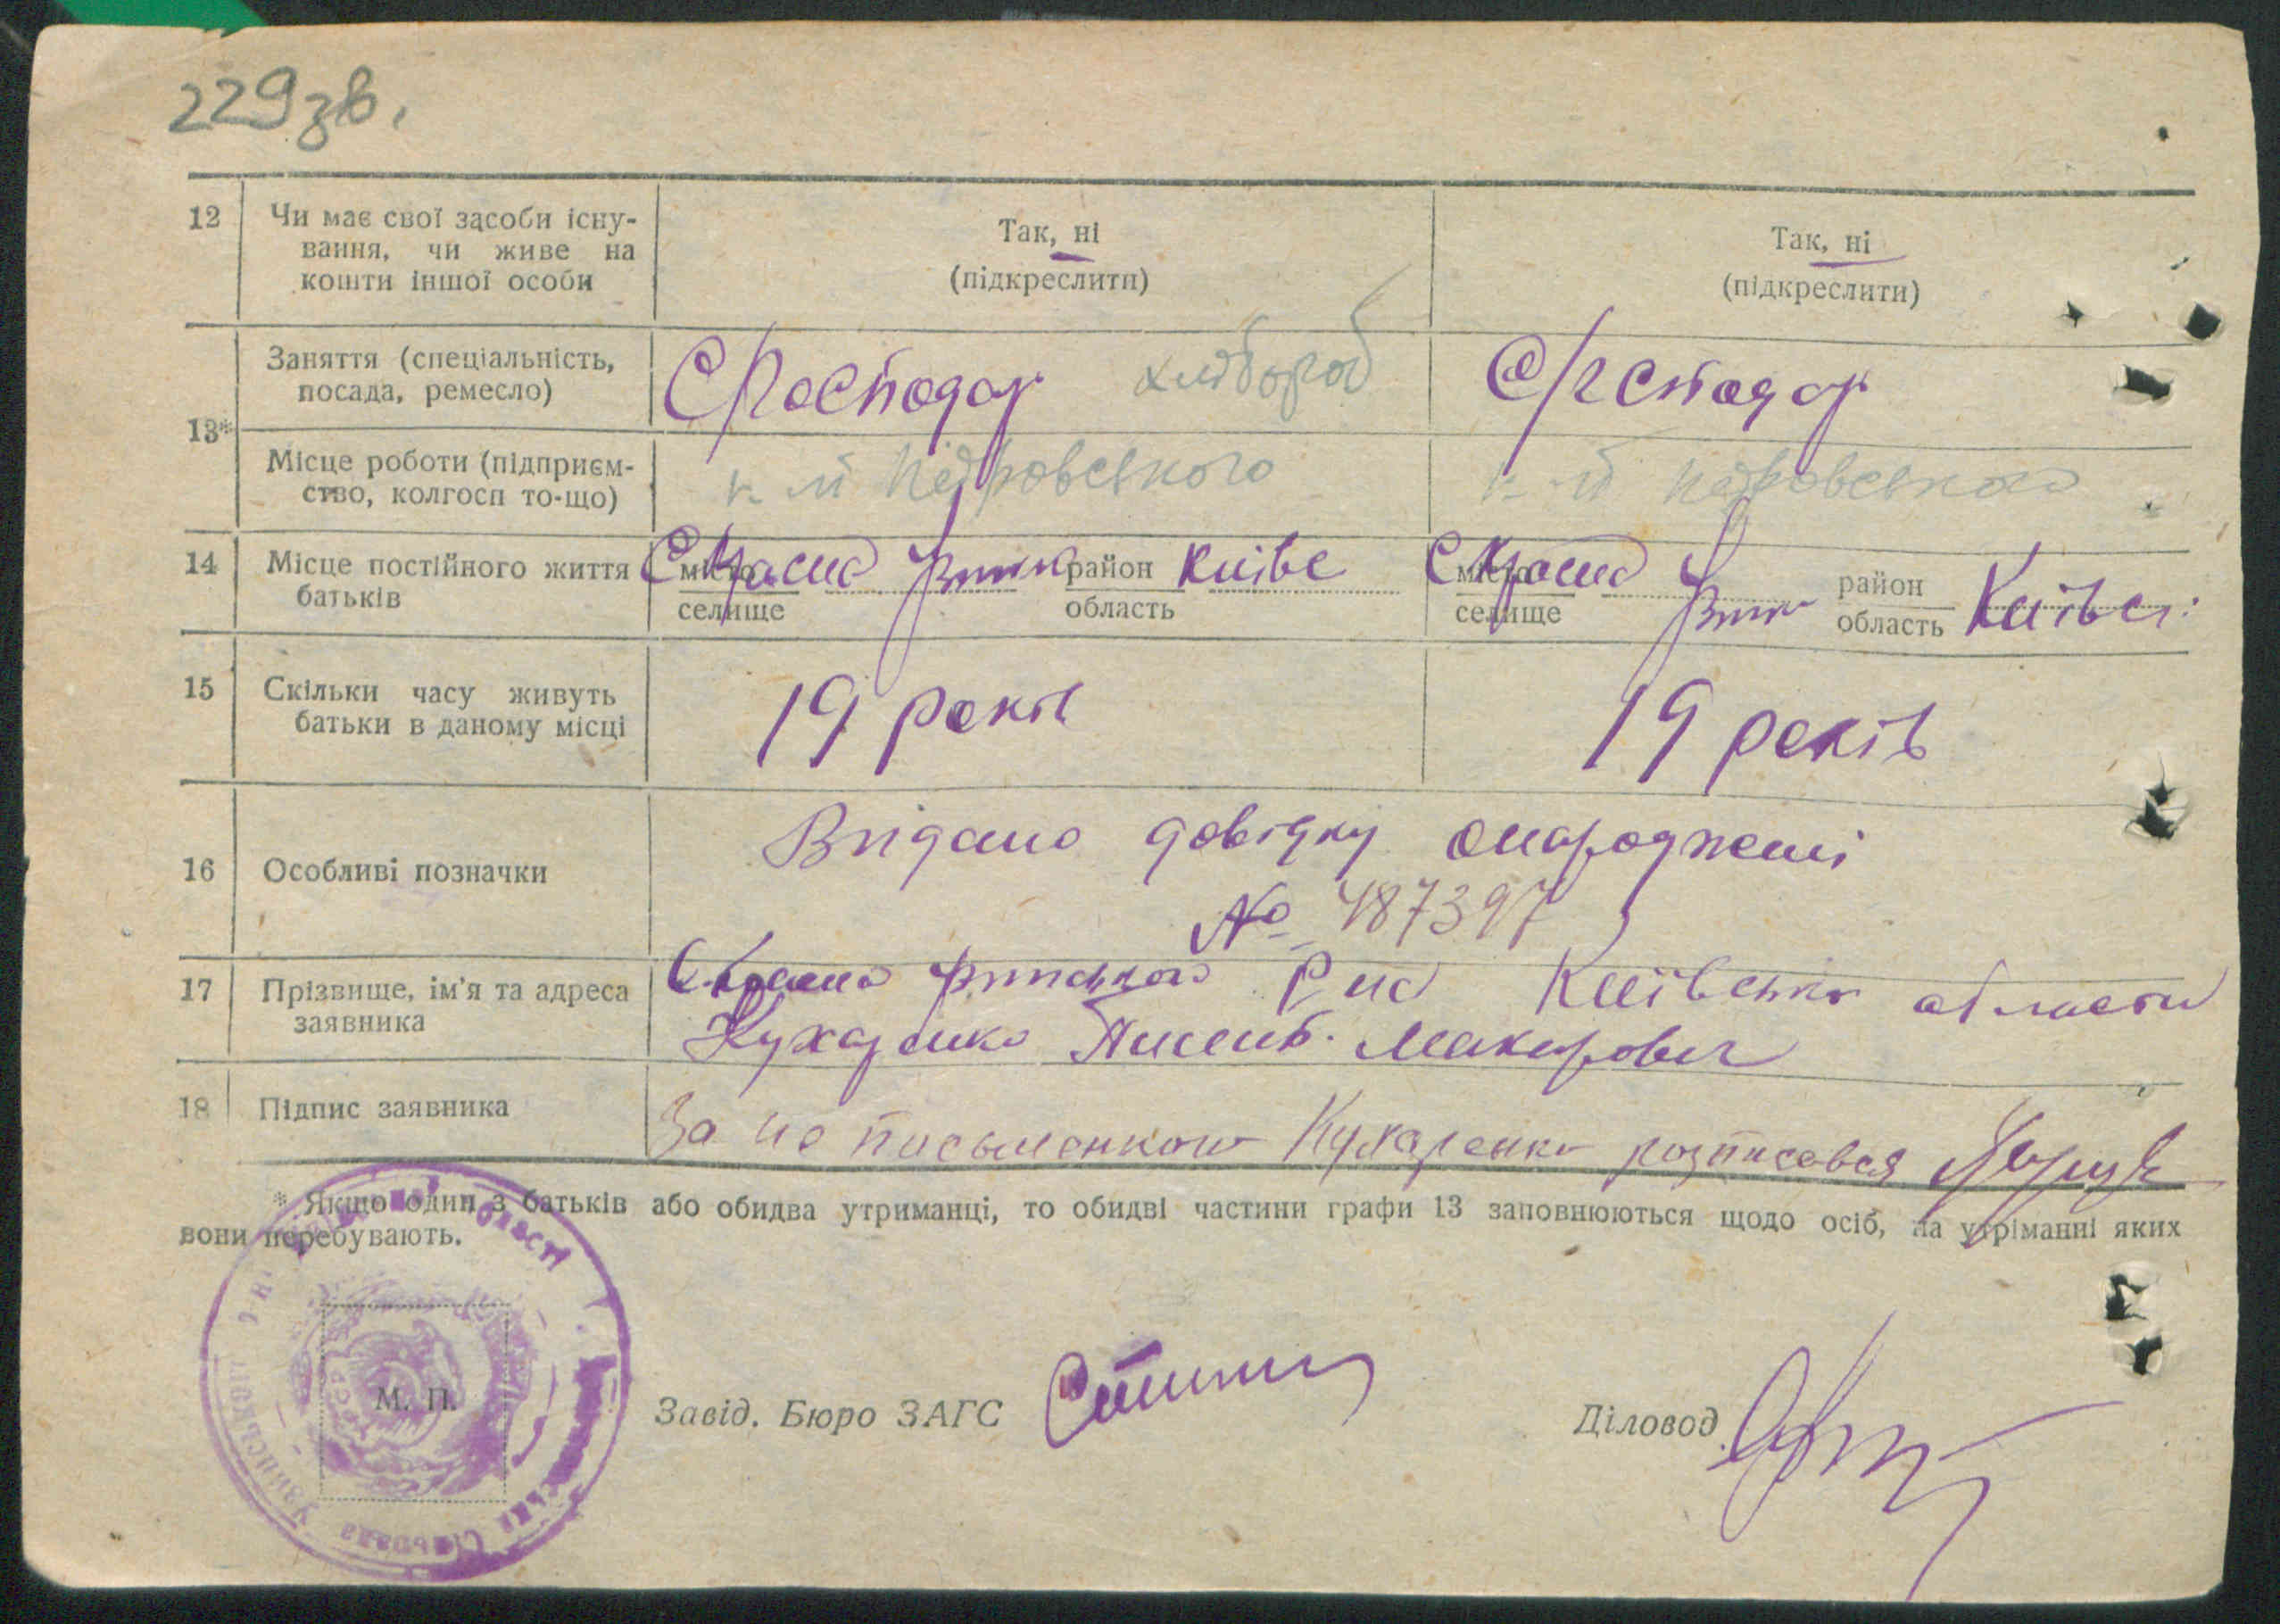 229 зв.
12 Чи має свої засоби існу-
вання, чи живе на
кошти іншої особи
Так, ні
(підкреслити)
Так, ні
(підкреслити)
13*
Заняття (спеціальність,
посада, ремесло)
хлібороб
Місце роботи (підприєм-
ство, колгосп то-що)
к-м Петровського
к-м Петровського
14 Місце постійного життя
батьків
місто
селище
район
область
Київс
місто
селище
район
область
Київсь
15 Скільки часу живуть
батьки в даному місці
19 років
19 років
16 Особливі позначки
Видано довідку онародженні
№ 487397
17 Прізвище, ім'я та адреса
заявника
Київської області
Кухаренко Макарович
18 Підпис заявника
За не письменного Кухаренко розписався
* Якщо один з батьків або обидва утриманці, то обидві частини графи 13 заповнюються щодо осіб, на утріманні яких
вони перебувають.
М. П.
Завід. Бюро ЗАГС
Діловод